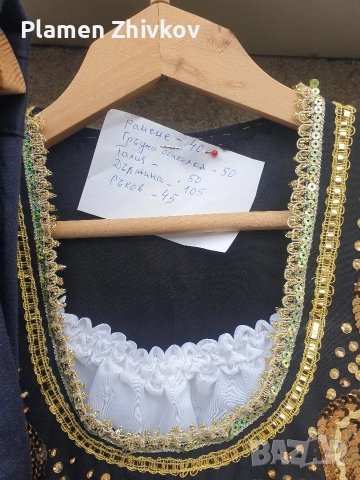 Plamen Zhivkov
Рамене - 40
Гръдна обиколка - 50
Талия - 50
Дължина - 105
Ръкав - 45
BAZAR